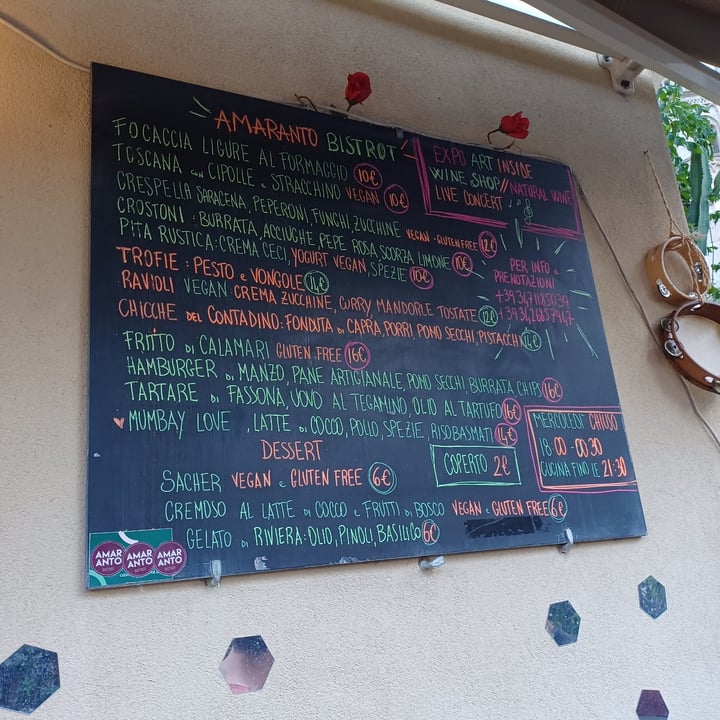 AMARANTO BISTROT
FOCACCIA LIGURE AL FORMAGGIO 10€
TOSCANA CON CIPOLLE e STRACCHINO VEGAN 10€
CRESPELLA SARACENA, PEPERONI, FUNGHI, ZUCCHINE VEGAN - GLUTEN FREE 12€
CROSTONI: BURRATA, ACCIUGHE, PEPE ROSA, SCORZA LIMONE 10€
PITA RUSTICA: CREMA CECI, YOGURT VEGAN, SPEZIE 10€
TROFIE: PESTO e VONGOLE 14€
RAVIOLI VEGAN: CREMA ZUCCHINE, CURRY, MANDORLE TOSTATE 12€
CHICCHE DEL CONTADINO: FONDUTA DI CAPRA, PORRI, POMO SECCHI, PISTACCHI 14€
FRITTO DI CALAMARI GLUTEN FREE 16€
HAMBURGER DI MANZO, PANE ARTIGIANALE, POMO SECCHI, BURRATA, CHIPS 16€
TARTARE DI FASSONA, UOVO AL TEGAMINO, OLIO AL TARTUFO 16€
MUMBAY LOVE, LATTE DI COCCO, POLLO, SPEZIE, RISO BASMATI 14€
DESSERT
SACHER VEGAN e GLUTEN FREE 6€
CREMOSO AL LATTE DI COCCO e FRUTTI DI BOSCO VEGAN e GLUTEN FREE 6€
GELATO DI RIVIERA: OLIO, PINOLI, BASILICO 6€
EXPO ART INSIDE
WINE SHOP // NATURAL WINE
LIVE CONCERT
PER INFO e
PRENOTAZIONI
COPERTO 2€
MERCOLEDI' CHIUSO
18:00 - 00:30
CUCINA FINO LE 21:30
AMAR AMAR AMAR
ANTO ANTO ANTO
BISTROT BISTROT BISTROT